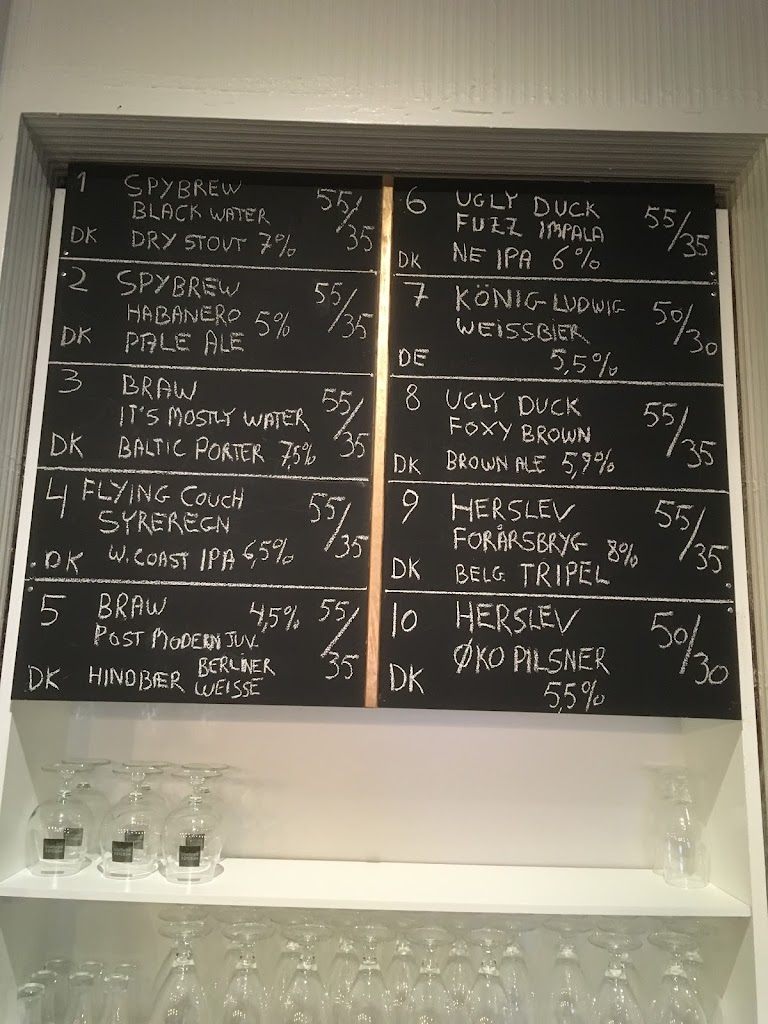 1 SPYBREW 55/35
BLACK WATER
DK DRY STOUT 7%
2 SPYBREW 55/35
HABANERO 5%
DK PALE ALE
3 BRAW 55/35
IT'S MOSTLY WATER
DK BALTIC PORTER 7,5%
4 FLYING COUCH 55/35
SYREREGN
DK W. COAST IPA 6,5%
5 BRAW 4,5% 55/35
POST MODERN JUV.
DK HINDBÆR BERLINER
WEISSE
6 UGLY DUCK 55/35
FUZZ IMPALA
DK NE IPA 6%
7 KÖNIG LUDWIG 50/30
WEISSBIER
DE 5,5%
8 UGLY DUCK 55/35
FOXY BROWN
DK BROWN ALE 5,9%
9 HERSLEV 55/35
FORÅRSBRYG 8%
DK BELG TRIPEL
10 HERSLEV 50/30
ØKO PILSNER
DK 5,5%